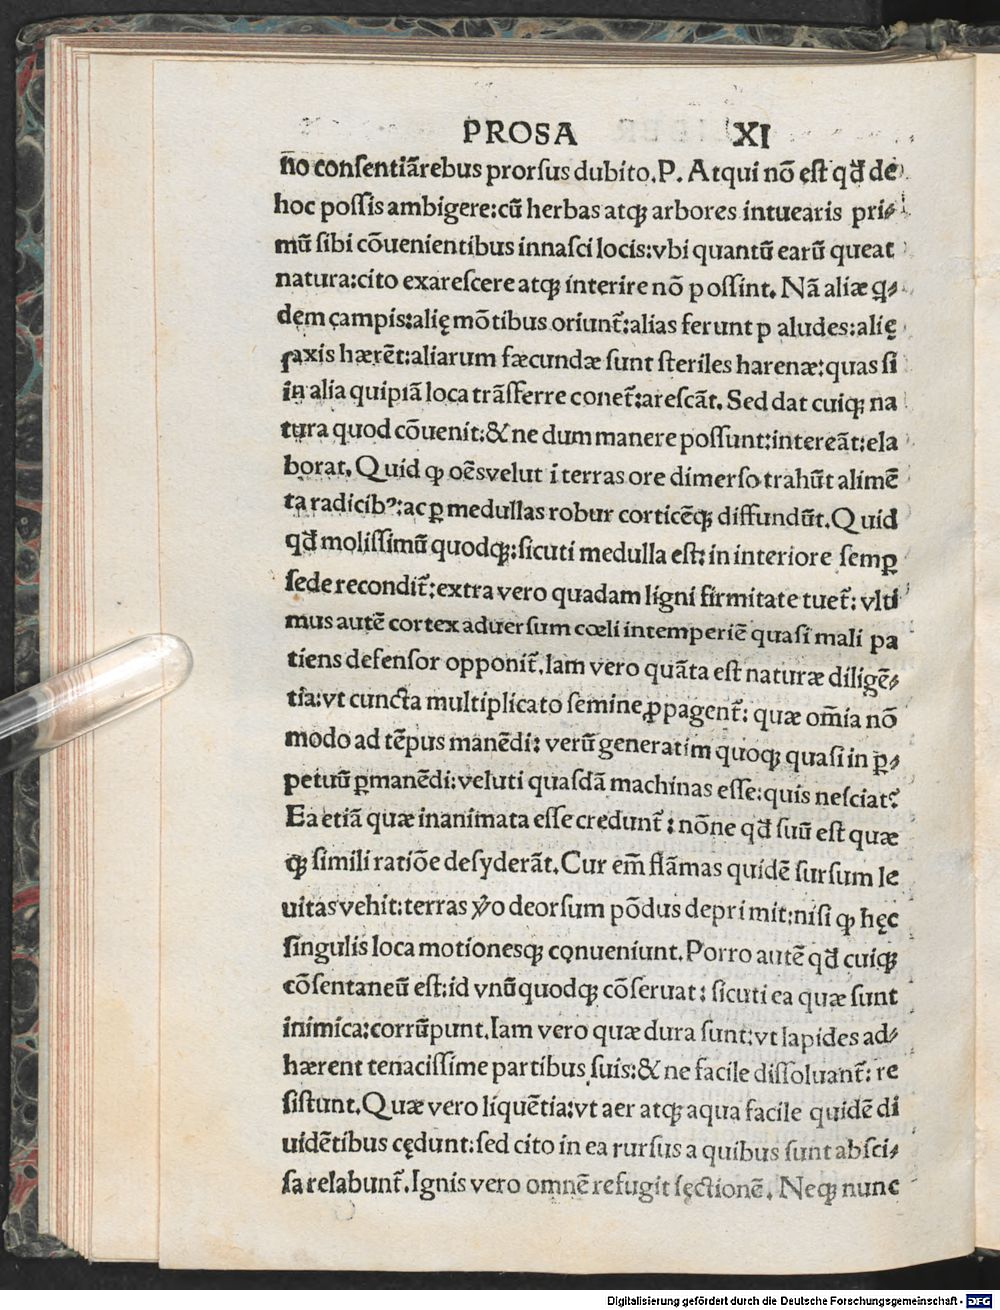 PROSA XI
no consentiārebus prorsus dubito.P. Atqui nō est qđ de
hoc possis ambigere:cū herbas atqꝫ arbores intuearis pri⸗
mū sibi cōuenientibus innasci locis:vbi quantū earū queat
natura:cito exarescere atqꝫ interire nō possint. Nā aliæ q⸗
dem campis:alię mōtibus oriunt̄:alias ferunt paludes:alię
saxis hærēt:aliarum fæcundæ sunt steriles harenæ:quas si
in alia quipiā loca trāsferre conet̄:arescāt. Sed dat cuiqꝫ na
tura quod cōuenit:& ne dum manere possunt:intereāt:ela
borat. Quid ꝙ oēsvelut i terras ore dimerso trahūt alimē
ta radicibꝰ:ac ꝑ medullas robur corticēqꝫ diffundūt.Quid
qđ molissimū quodqꝫ:sicuti medulla est:in interiore semꝑ
sede recondit̄:extra vero quadam ligni firmitate tuet̄: vlti
mus autē cortex aduersum cœli intemperiē quasi mali pa
tiens defensor opponit̄.Iam vero quāta est naturæ diligē⸗
tia:vt cuncta multiplicato semine ꝓpagent̄: quæ om̄ia nō
modo ad tēpus manēdi: verū generatim quoqꝫ quasi in ꝑ⸗
petuū ꝑmanēdi:veluti quasdā machinas esse:quis nesciat?
Ea etiā quæ inanimata esse credunt̄: nōne qđ suū est quæ
qꝫ simili ratiōe desyderāt.Cur em̄ flāmas quidē sursum le
uitas vehit:terras v̄o deorsum pōdus deprimit:nisi ꝙ hęc
singulis loca motionesqꝫ conueniunt.Porro autē qđ cuiqꝫ
cōsentaneū est:id vnūquodqꝫ cōseruat: sicuti ea quæ sunt
inimica:corrūpunt.Iam vero quæ dura sunt:vt lapides ad⸗
hærent tenacissime partibus suis:& ne facile dissoluant̄: re
sistunt.Quæ vero liquētia:vt aer atqꝫ aqua facile quidē di
uidētibus cędunt:sed cito in ea rursus a quibus sunt absci⸗
sa relabunt̄.Ignis vero omnē refugit sęctionē. Neqꝫ nunc
Digitalisierung gefördert durch die Deutsche Forschungsgemeinschaft - DFG